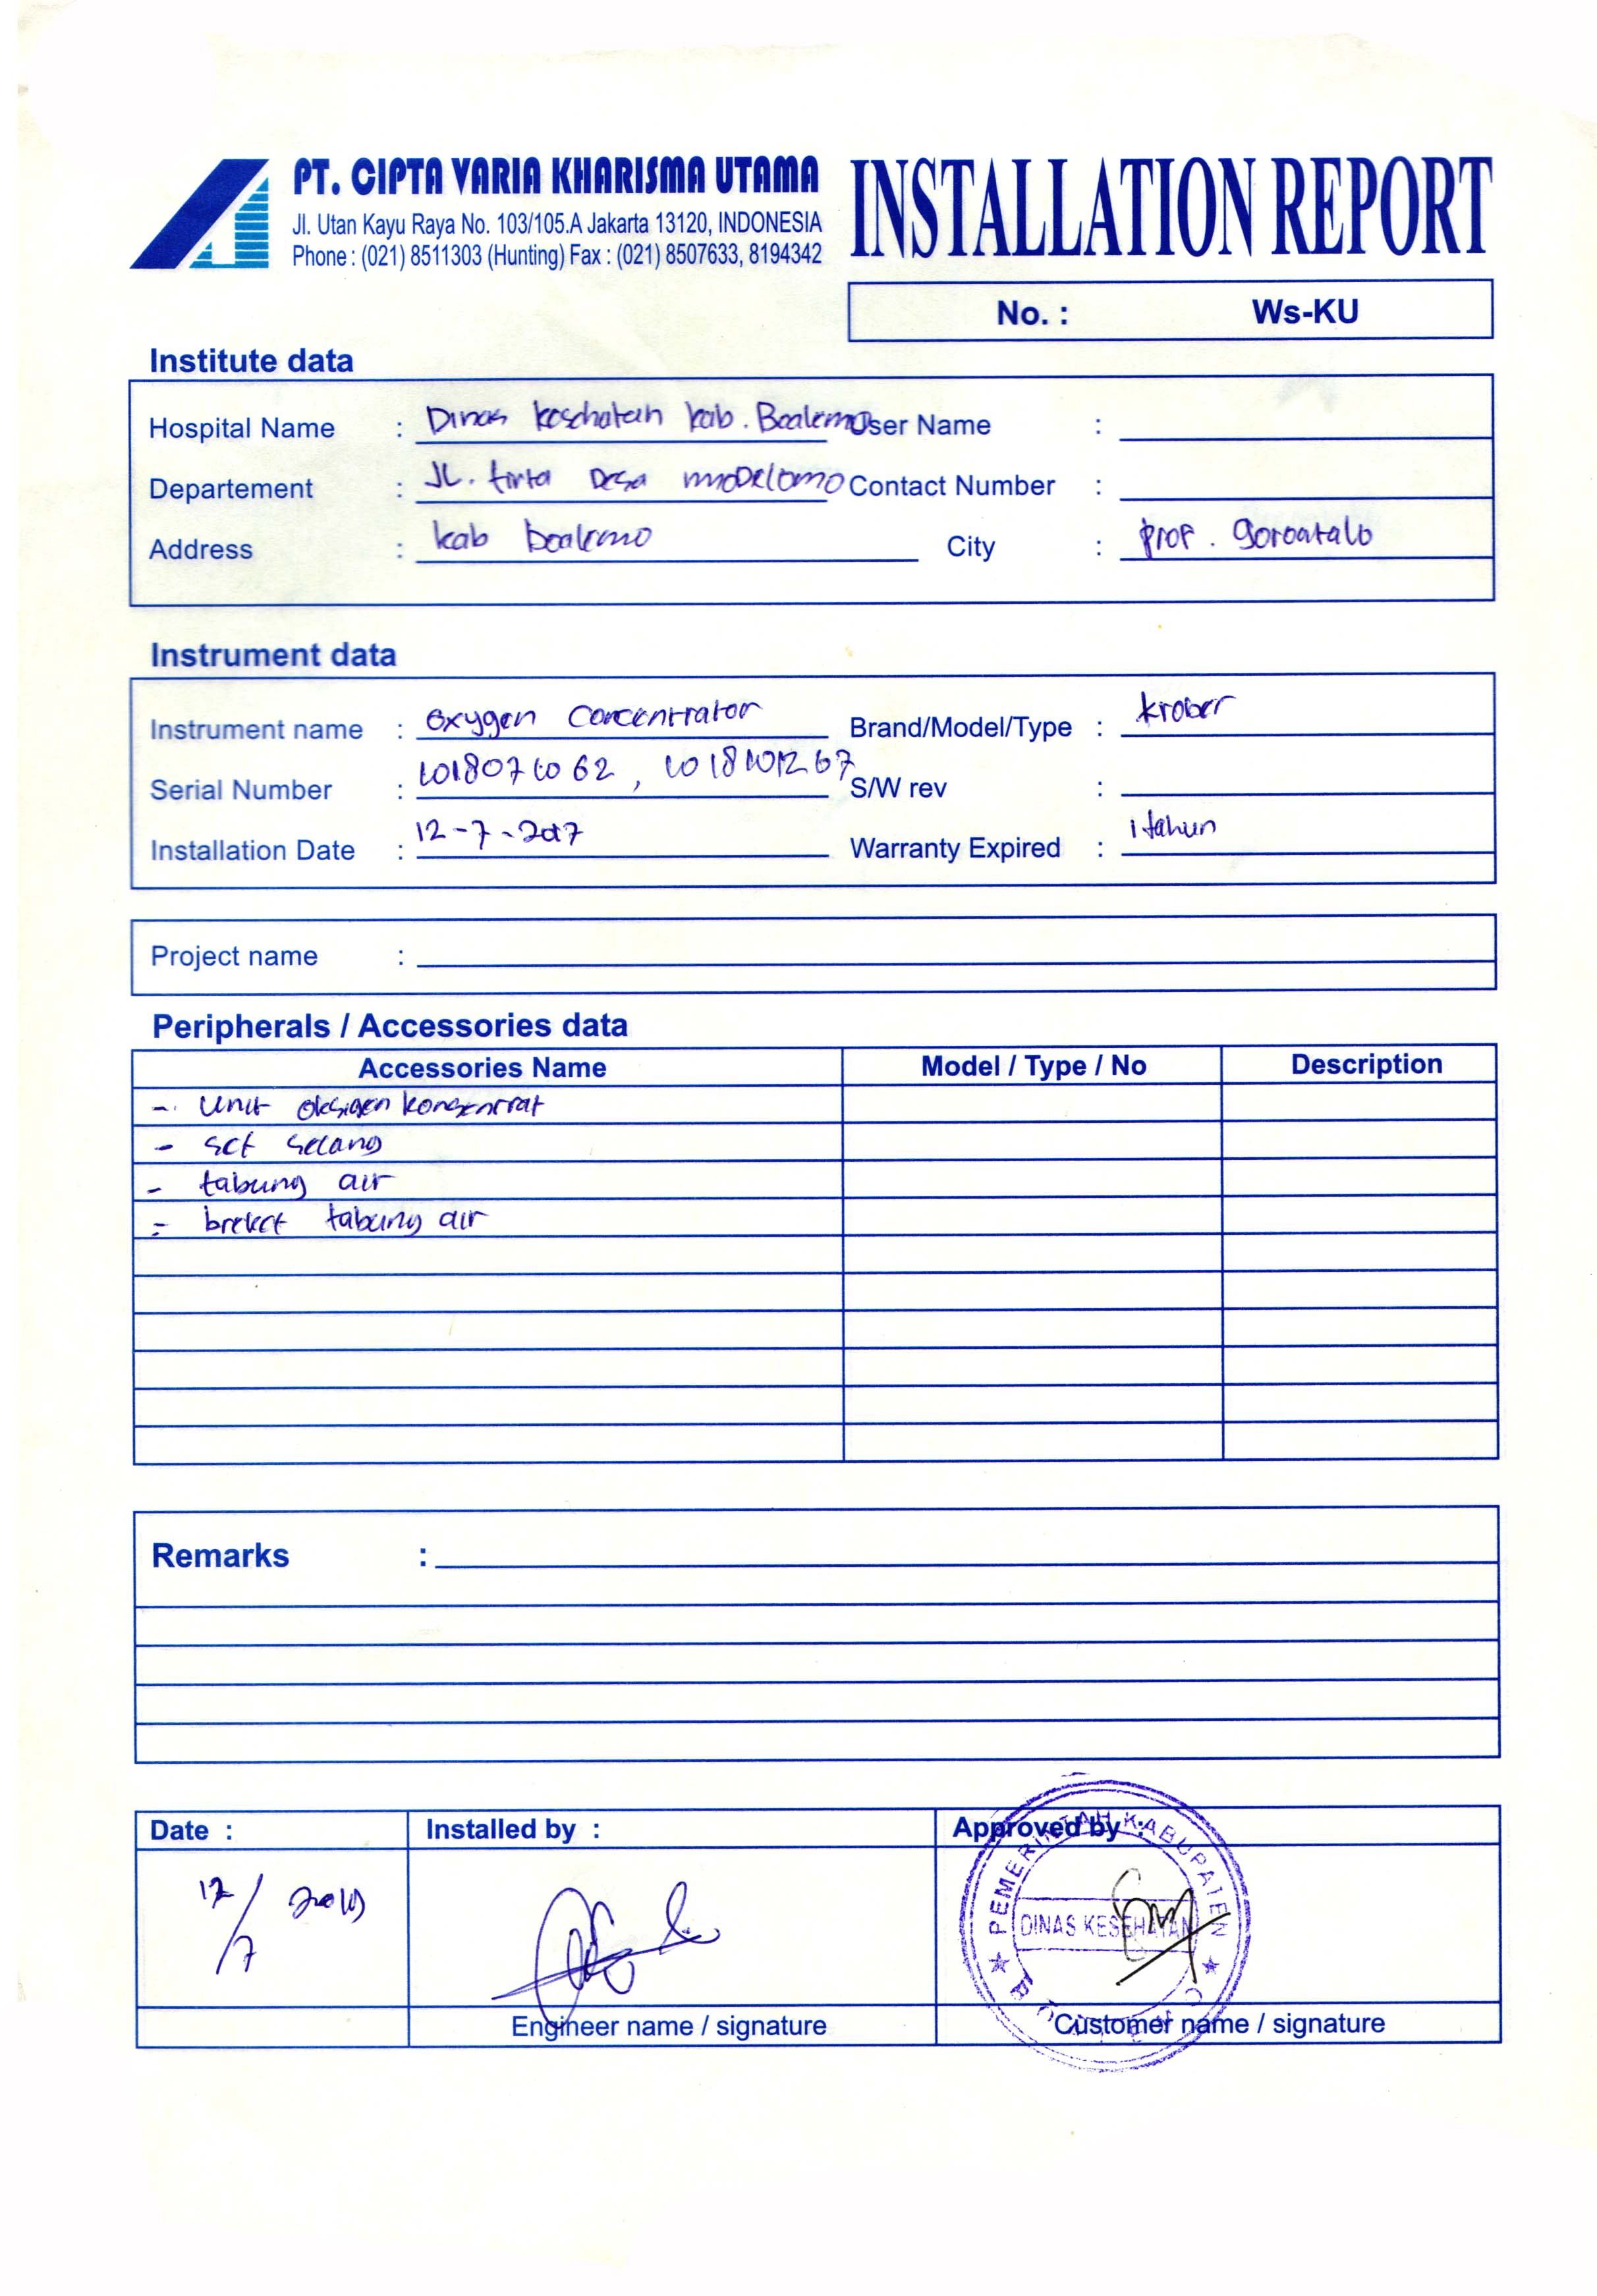 PT. CIPTA VARIA KHARISMA UTAMA
Jl. Utan Kayu Raya No. 103/105.A Jakarta 13120, INDONESIA
Phone : (021) 8511303 (Hunting) Fax : (021) 8507633, 8194342
INSTALLATION REPORT
No. : Ws-KU
Institute data
Hospital Name : Dinas kesehatan kab. Boalemo User Name :
Departement : JL. tirta Desa modelomo Contact Number :
Address : kab boalemo City : prof. gorontalo
Instrument data
Instrument name : Oxygen Concentrator Brand/Model/Type : krober
Serial Number : S/W rev :
Installation Date : 12-7-2017 Warranty Expired : 1 tahun
Project name :
Peripherals / Accessories data
Accessories Name Model / Type / No Description
- Unit oksigen konsentrat
- set selang
- tabung air
- breket tabung air
Remarks :
Date : Installed by : Approved by :
12/7
PEMERINTAH KABUPATEN
DINAS KESEHATAN
Engineer name / signature Customer name / signature